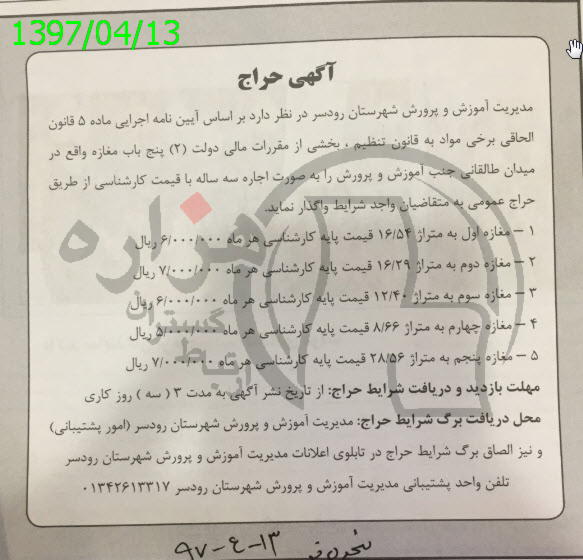 1397/04/13
آگهی حراج
مدیریت آموزش و پرورش شهرستان رودسر در نظر دارد بر اساس آیین نامه اجرایی ماده ۵ قانون
الحاقی برخی مواد به قانون تنظیم ، بخشی از مقررات مالی دولت (۲) پنج باب مغازه واقع در
میدان طالقانی جنب آموزش و پرورش را به صورت اجاره سه ساله با قیمت کارشناسی از طریق
حراج عمومی به متقاضیان واجد شرایط واگذار نماید.
۱ – مغازه اول به متراژ ۱۶/۵۴ قیمت پایه کارشناسی هر ماه ۶/۰۰۰/۰۰۰ ریال
۲ – مغازه دوم به متراژ ۱۶/۲۹ قیمت پایه کارشناسی هر ماه ۷/۰۰۰/۰۰۰ ریال
۳ – مغازه سوم به متراژ ۱۲/۴۰ قیمت پایه کارشناسی هر ماه ۶/۰۰۰/۰۰۰ ریال
۴ – مغازه چهارم به متراژ ۸/۶۶ قیمت پایه کارشناسی هر ماه ۵/۰۰۰/۰۰۰ ریال
۵ – مغازه پنجم به متراژ ۲۸/۵۶ قیمت پایه کارشناسی هر ماه ۷/۰۰۰/۰۰۰ ریال
مهلت بازدید و دریافت شرایط حراج: از تاریخ نشر آگهی به مدت ۳ ( سه ) روز کاری
محل دریافت برگ شرایط حراج: مدیریت آموزش و پرورش شهرستان رودسر (امور پشتیبانی)
و نیز الصاق برگ شرایط حراج در تابلوی اعلانات مدیریت آموزش و پرورش شهرستان رودسر
تلفن واحد پشتیبانی مدیریت آموزش و پرورش شهرستان رودسر ۰۱۳۴۲۶۱۳۳۱۷
هزاره
گستران
ارتباط
۹۷-۴-۱۳